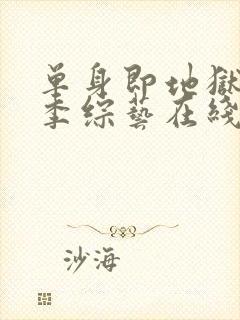 单身即地獄
季綜藝在綫
沙海